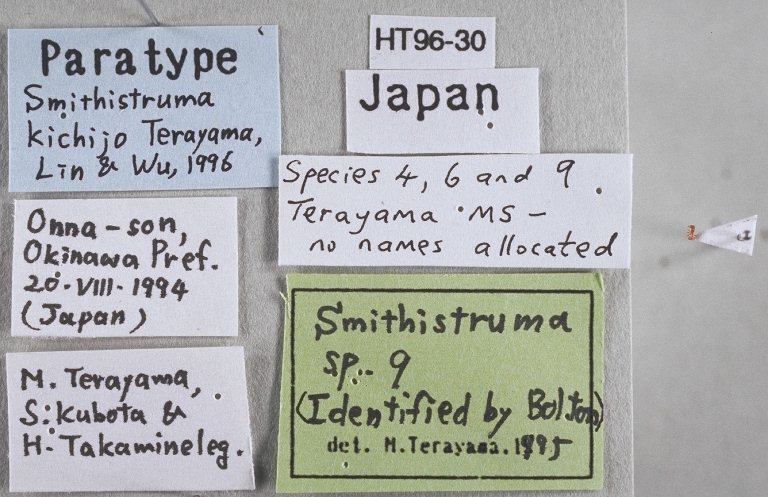 Paratype
Smithistruma
kichijo Terayama,
Lin & Wu, 1996
Onna-son,
Okinawa Pref.
20·VIII·1994
(Japan)
M. Terayama,
S. Kubota &
H. Takamine leg.
HT96-30
Japan
Species 4, 6 and 9
Terayama MS –
no names allocated
Smithistruma
sp. 9
(Identified by Bolton)
det. M. Terayama. 1995